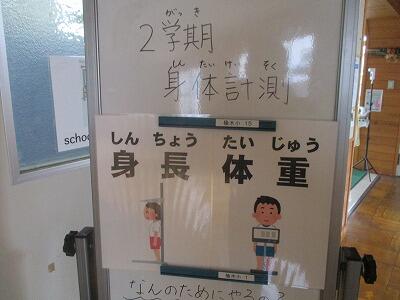 がっき
2学期
しんたいけいそく
身体計測
楡木小 15
しんちょう たいじゅう
身長 体重
schoo
楡木小 1
なんのためにやるの？